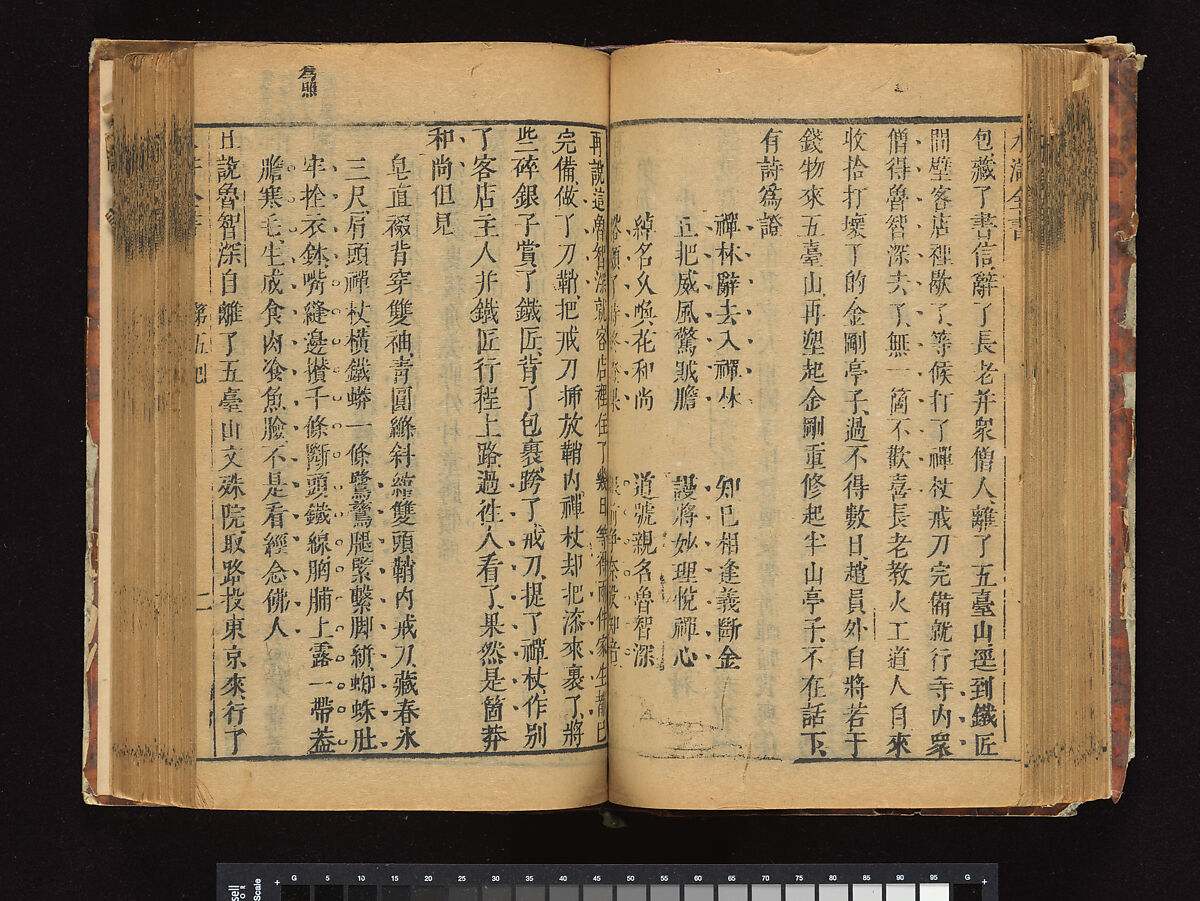 水滸全書
包藏了書信辭了長老并衆僧人離了五臺山逕到鐵匠
間壁客店裡歇了等候打了禪杖戒刀完備就行寺内衆
僧得魯智深去了無一箇不歡喜長老教火工道人自來
收拾打壞了的金剛亭子過不得數日趙員外自將若干
錢物來五臺山再塑起金剛重修起半山亭子不在話下
有詩爲證
禪林辭去入禪林 知巳相逢義斷金
且把威風驚賊膽 謾將妙理悅禪心
綽名久喚花和尚 道號親名魯智深
再說這魯智深就客店裡住了幾日等得兩件家生都已
完備做了刀鞘把戒刀插放鞘内禪杖却把漆來裹了將
些碎銀子賞了鐵匠背了包裹跨了戒刀提了禪杖作別
了客店主人并鐵匠行程上路過往人看了果然是箇莽
和尚但見
皂直裰背穿雙袖青圓縧斜綰雙頭鞘内戒刀藏春氷
三尺肩頭禪杖橫鐵蟒一條鷺鷥腿緊繫脚絣蜘蛛肚
牢拴衣鉢嘴縫邊攅千條斷頭鐵線胸脯上露一帶葢
膽寒毛生成食肉飡魚臉不是看經念佛人
且說魯智深自離了五臺山文殊院取路投東京來行了
第五回
二
爲照
G 5 10 20 30 40 45 50 55 60 65 70 75 80 85 90 95 G
Scale